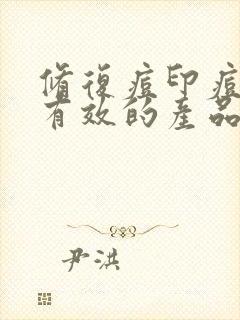 修復痘印痘
有效的產品
尹洪